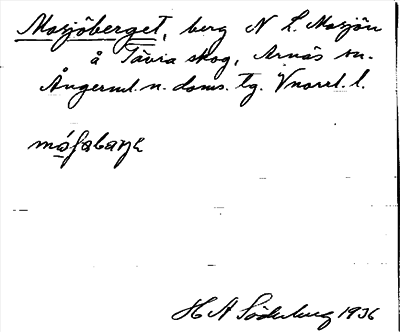 Masjöberget, berg N L. Masjön
å Tävra skog, Arnäs sn.
Ångerml. n. doms. tg. Vnorrl. l.
H A Söderberg 1936